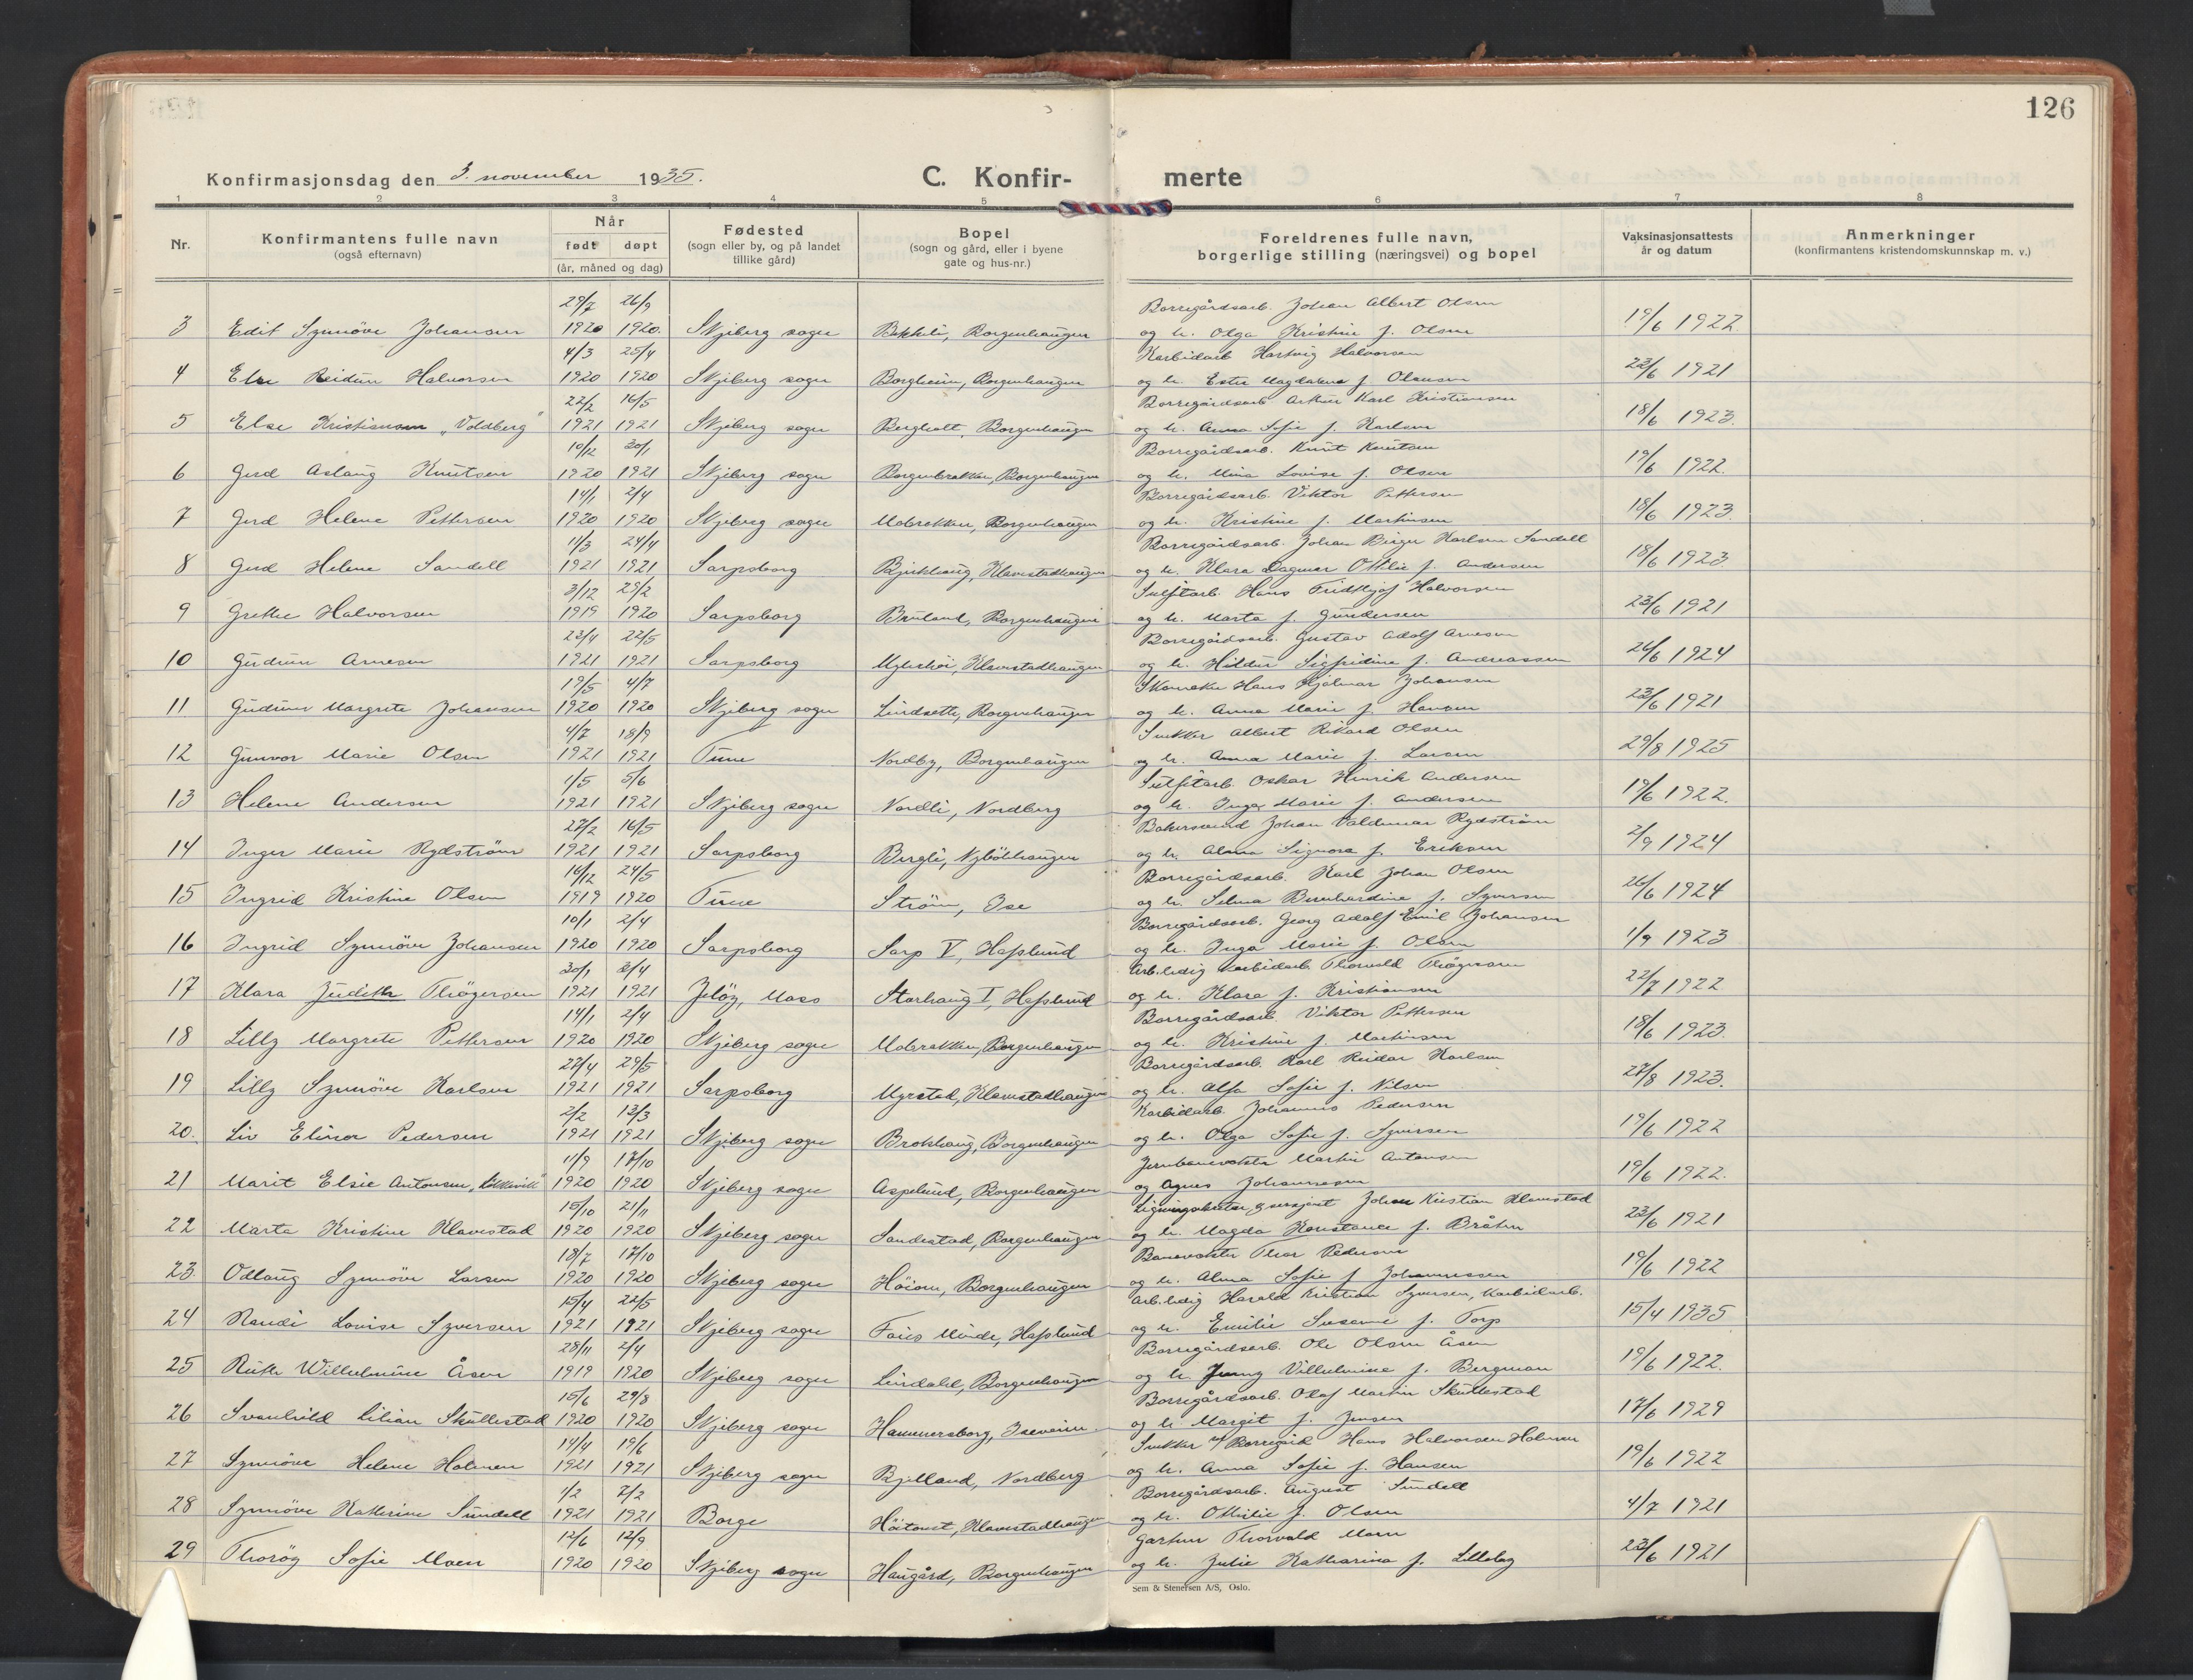 126
Konfirmasjonsdag den 3. november 1935.
C. Konfir- merte
1 2 3 4 5 6 7 8
Nr.
Konfirmantens fulle navn
(også efternavn)
Når
født døpt
(år, måned og dag)
Fødested
(sogn eller by, og på landet
tillike gård)
Bopel
(sogn og gård, eller i byene
gate og hus-nr.)
Foreldrenes fulle navn,
borgerlige stilling (næringsvei) og bopel
Vaksinasjonsattests
år og datum
Anmerkninger
(konfirmantens kristendomskunnskap m. v.)
29/7 26/9 Borregårdsarb. Johan Albert Olsen
3 Edit Synnöve Johansen 1920 1920. Skjeberg sogn Bekkeli, Borgenhaugen og h. Olga Kristine f. Olsen 19/6 1922.
4/3 25/4 Karbidarb Hartvig Halvorsen
4 Else Reidun Halvorsen 1920 1920 Skjeberg sogn Borgheim, Borgenhaugen og h. Ester Magdalena f. Olausen 23/6 1921
22/2 16/5 Borregårdsarb Arthur Karl Kristiansen
5 Else Kristiansen "Voldberg" 1921 1921 Skjeberg sogn Bergholt, Borgenhaugen og h. Anna Sofie f. Karlsen 18/6 1923.
10/12 30/1 Borregårdsarb. Knut Knutsen
6 Gerd Aslaug Knutsen 1920 1921 Skjeberg sogn Borgenbrakken, Borgenhaugen og h. Mina Lovise f. Olsen 19/6 1922.
14/1 2/4 Borregårdsarb. Viktor Pettersen
7 Gerd Helene Pettersen 1920 1920 Skjeberg sogn Mobrakken, Borgenhaugen og h. Kristine f. Martinsen 18/6 1923.
11/3 24/4 Borregårdsarb. Johan Birger Karlsen Sandell
8 Gerd Helene Sandell 1921 1921 Sarpsborg Bjirkhaug, Klavestadhaugen og h. Klara Dagmar Ottilie f. Andersen 18/6 1923.
3/12 29/2 Sulfitarb. Hans Fridthjof Halvorsen
9 Grethe Halvorsen 1919 1920 Sarpsborg Bruland, Borgenhaugen og h. Marta f. Gundersen 23/6 1921
23/4 22/5 Borregårdsarb. Gustav Adolf Arnesen
10 Gudrun Arnesen 1921 1921 Sarpsborg Klavestadhaugen og h. Hildur Sigfridine f. Andreassen 26/6 1924
19/5 4/7 Skomaker Hans Hjalmar Johansen
11 Gudrun Margrete Johansen 1920 1920 Skjeberg sogn Lindsette, Borgenhaugen og h. Anna Marie f. Hansen 23/6 1921
4/7 18/9 Snekker Albert Rikard Olsen
12 Gunvor Marie Olsen 1921 1921 Tune Nordby, Borgenhaugen og h. Anna Marie f. Larsen 29/8 1925
1/5 5/6 Sulfitarb. Oskar Henrik Andersen
13 Helene Andersen 1921 1921 Skjeberg sogn Nordli, Nordberg og h. Inga Marie f. Andersen 19/6 1922.
27/2 16/5 Bakersvend Johan Valdemar Rydström
14 Inger Marie Rydström 1921 1921 Sarpsborg Bergli, Nybölhaugen og h. Alma Signora f. Eriksen 2/9 1924
16/12 24/5 Borregårdsarb. Karl Johan Olsen
15 Ingrid Kristine Olsen 1919 1920 Tune Ström, Ise og h. Selma Bernhardine f. Syversen 26/6 1924
10/1 2/4 Borregårdsarb. Georg Adolf Emil Johansen
16 Ingrid Synnöve Johansen 1920 1920 Sarpsborg Sarp V, Hafslund og h. Inga Marie f. Olsen 1/9 1923
30/1 3/4 Arb.ledig karbidarb. Thorvald Thögersen
17 Klara Judith Thögersen 1921 1921 Jelöy, Moss Storhaug I, Hafslund og h. Klara f. Kristiansen 22/7 1922
14/1 2/4 Borregårdsarb. Viktor Pettersen
18 Lilly Margrete Pettersen 1920 1920 Skjeberg sogn Mobrakken, Borgenhaugen og h. Kristine f. Martinsen 18/6 1923.
27/4 29/5 Borregårdsarb. Karl Reidar Karlsen
19 Lilly Synnöve Karlsen 1921 1921 Sarpsborg Myrstad, Klavestadhaugen og h. Alfa Sofie f. Nilsen 27/8 1923.
2/2 13/3 Karbidarb. Johannes Pedersen
20. Liv Elinor Pedersen 1921 1921 Skjeberg sogn Brokhaug, Borgenhaugen og h. Olga Sofie f. Syversen 19/6 1922
11/9 17/10 Jernbanevokter Martin Antonsen
21 Marit Elsie Antonsen 1920 1920 Skjeberg sogn Aspelund, Borgenhaugen og Agnes Johannessen 19/6 1922.
15/10 21/11 sersjant Johan Kristian Klavestad
22 Marta Kristine Klavestad 1920 1920 Skjeberg sogn Sandestad, Borgenhaugen og h. Magda Konstance f. Bråten 23/6 1921
18/7 17/10 Banevokter Thor Pedersen
23. Odlaug Synnöve Larsen 1920 1920 Skjeberg sogn Höiom, Borgenhaugen og h. Alma Sofie f. Johannessen 19/6 1922
15/4 22/5 Arb.ledig Harald Kristian Syversen, karbidarb.
24 Randi Lovise Syversen 1921 1921 Skjeberg sogn Fairs Minde, Hafslund og h. Emilie Susanne f. Torp 15/4 1935
28/11 2/4 Borregårdsarb. Ole Olsen Åsen
25 Ruth Willulmine Åsen 1919 1920 Skjeberg sogn Lindahl, Borgenhaugen og h. Jenny Villulmine f. Bergman 19/6 1922.
15/6 29/8 Borregårdsarb. Olaf Martin Skullestad
26 Svanhild Lilian Skullestad 1920 1920 Skjeberg sogn Hammersborg, Iseveien og h. Margit f. Jensen 17/6 1929
14/4 19/6 Snekker v/ Borregård Hans Halvorsen Holmen
27 Synnöve Helene Holmen 1921 1921 Skjeberg sogn Bjelland, Nordberg og h. Anna Sofie f. Hansen 19/6 1922
1/2 7/2 Borregårdsarb. August Sundell
28 Synnöve Katherine Sundell 1921 1921 Borge Höitomt, Klavestadhaugen og h. Ottilie f. Olsen 4/7 1921
12/6 12/9 Gartner Thorvald Moen
29 Thoröy Sofie Moen 1920 1920 Skjeberg sogn Haugård, Borgenhaugen og h. Julie Katharina f. Lilleby 23/6 1921
Sem & Stenersen A/S, Oslo.